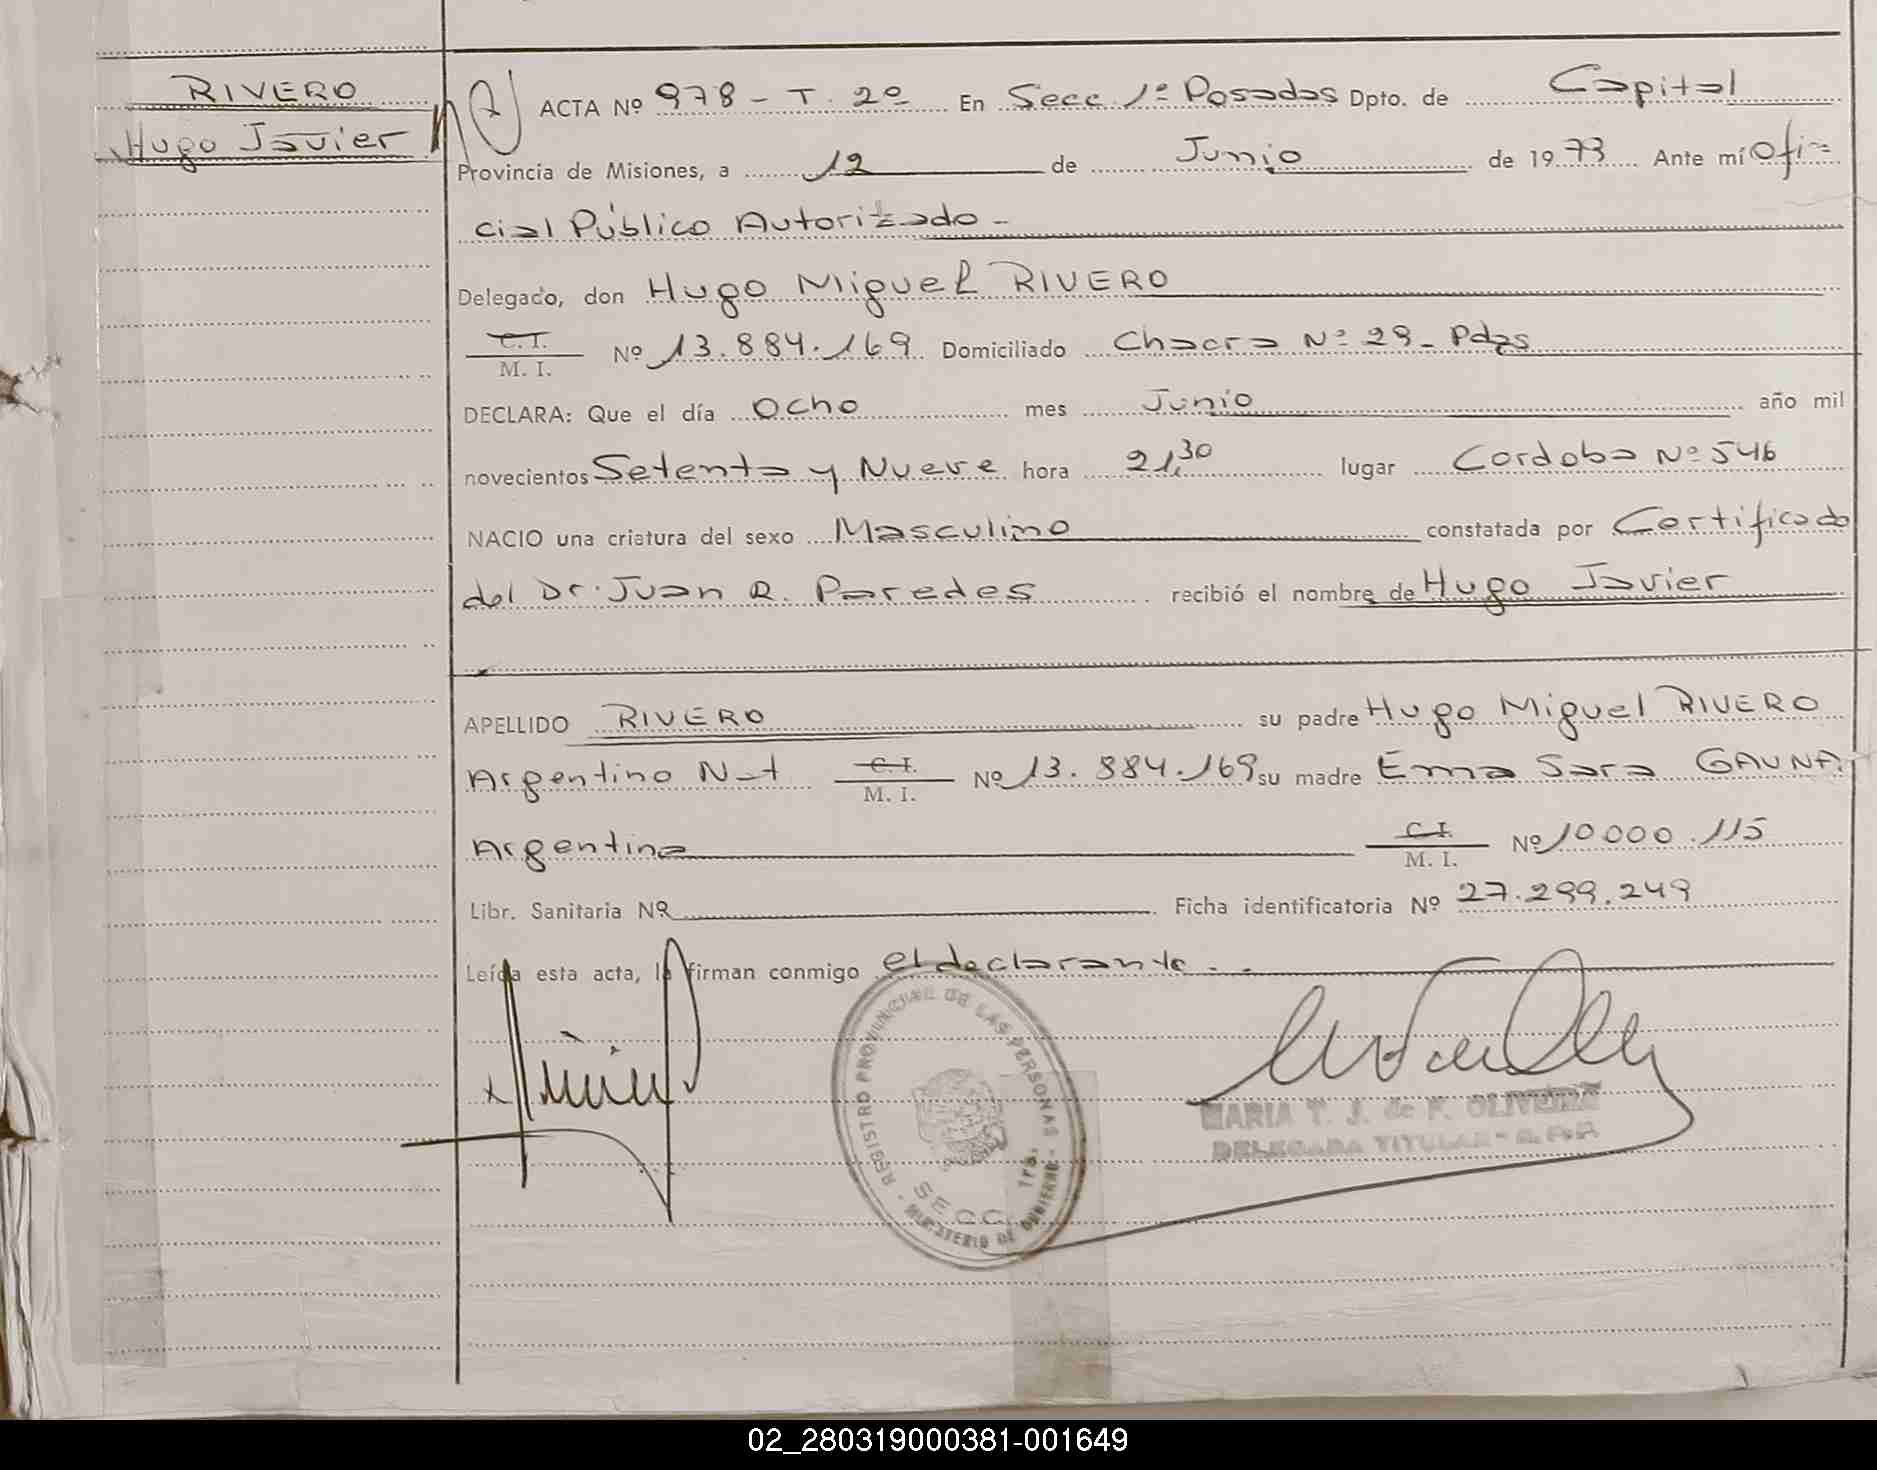 RIVERO
Hugo Javier
ACTA Nº 978 - T. 2º En Secc. 1º Posadas Dpto. de Capital
Provincia de Misiones, a 12 de Junio de 1973 Ante mí Ofi-
cial Público Autorizado -
Delegado, don Hugo Miguel RIVERO
C. I.
M. I. Nº 13.884.169 Domiciliado Chacra Nº 29 - Pdas
DECLARA: Que el día Ocho mes Junio año mil
novecientos Setenta y Nueve hora 21,30 lugar Cordoba Nº 546
NACIO una criatura del sexo Masculino constatada por Certificado
del Dr. Juan R. Paredes recibió el nombre de Hugo Javier
APELLIDO RIVERO su padre Hugo Miguel RIVERO
Argentino Nat C. I. M. I. Nº 13.884.169 su madre Ema Sara GAUNA.
Argentina C. I. M. I. Nº 10000.115
Libr. Sanitaria Nº Ficha identificatoria Nº 27.299.249
Leída esta acta, la firman conmigo el declarante.
REGISTRO PROVINCIAL DE LAS PERSONAS - MINISTERIO DE GOBIERNO -
SECC. 1ra.
MARIA T. J. de F. OLIVEIRA
DELEGADA TITULAR - R.P.P.
02_280319000381-001649